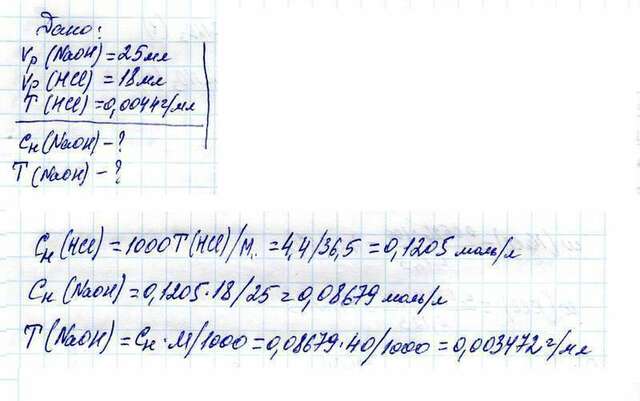 Дано:
Vр (NaOH) = 25 мл
Vр (HCl) = 18 мл
T (HCl) = 0,0044 г/мл
Cн (NaOH) - ?
T (NaOH) - ?
Cн (HCl) = 1000T (HCl)/M. = 4,4/36,5 = 0,1205 моль/л
Cн (NaOH) = 0,1205·18/25 = 0,08679 моль/л
T (NaOH) = Cн·M/1000 = 0,08679·40/1000 = 0,003472 г/мл